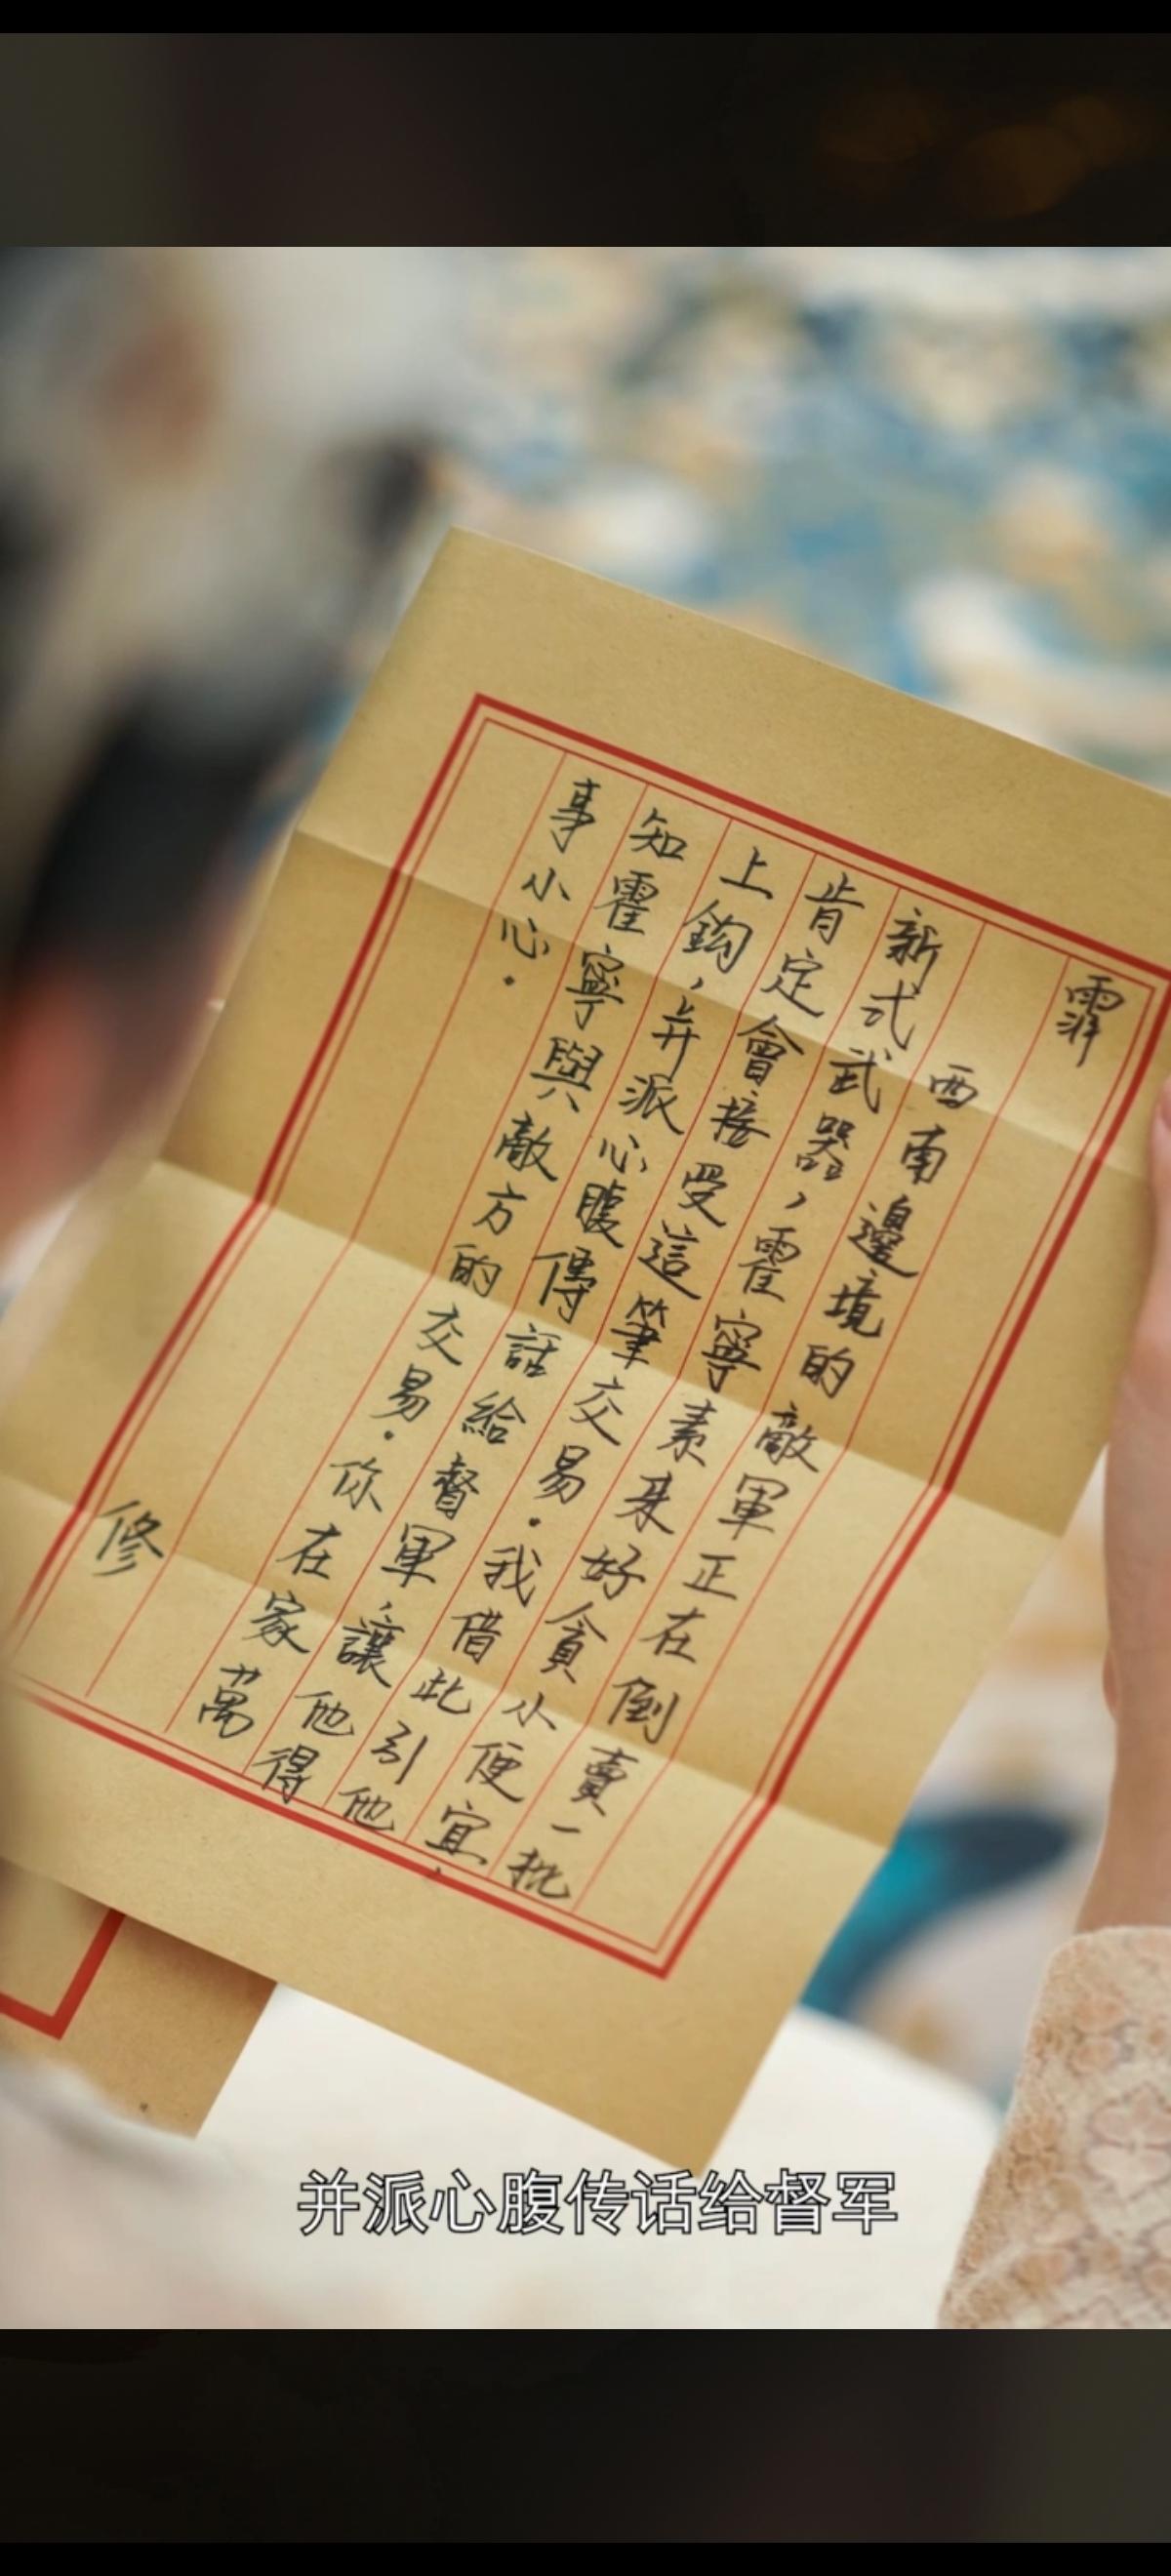 霏
西南邊境的敵軍正在倒賣一批
新式武器，霍寧素來好貪小便宜，
肯定會接受這筆交易.我借此引他
上鈎，并派心腹傳話給督軍，讓他得
知霍寧與敵方的交易.你在家萬
事小心.
修
并派心腹传话给督军